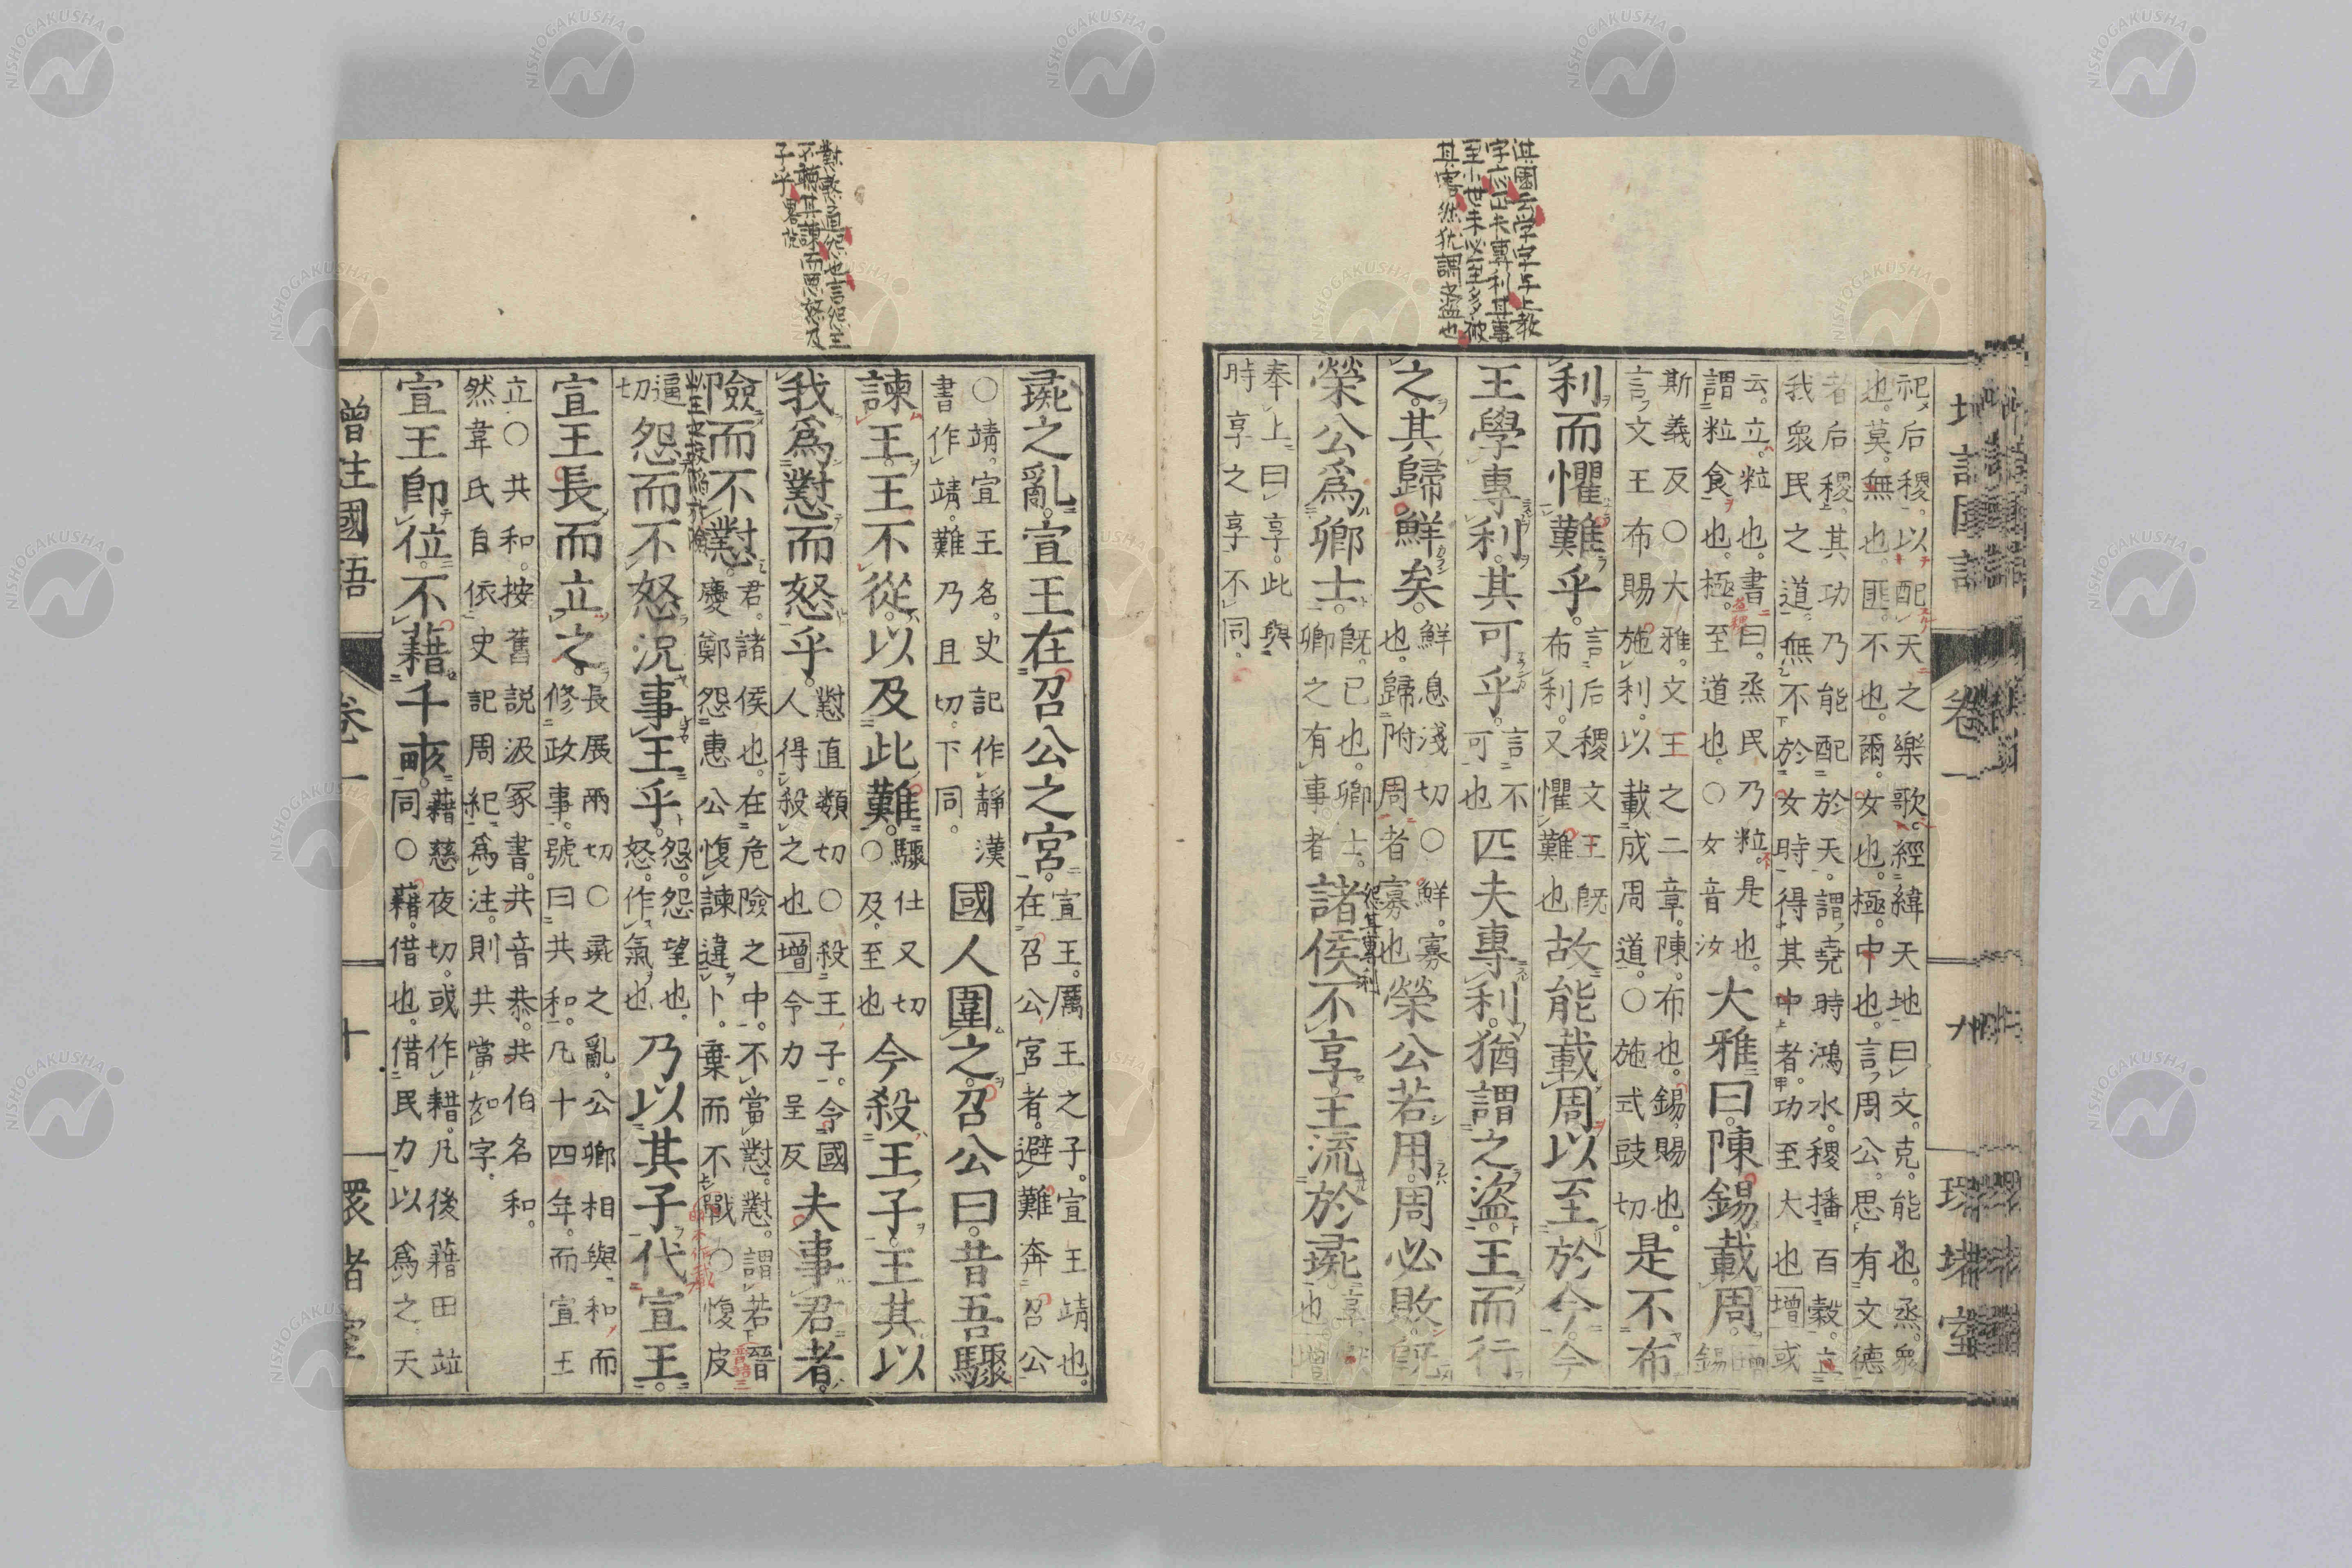 其國云学字与上教
字応正夫專利其事
至小世未必至多被
其害然犹謂盗也
祀后稷。以配天之樂歌。經緯天地曰文。克。能也。烝。衆
也。莫。無也。匪。不也。爾。女也。極。中也。言周公思有文德
者后稷。其功乃能配於天。謂堯時鴻水。稷播百穀。立
我衆民之道。無不於女時得其中者。功至大也增或
云。立。粒也。書曰。烝民乃粒。是也。
謂粒食也。極。至道也。○女音汝
大雅曰。陳錫載周。
錫
斯義反○大雅。文王之二章。陳。布也。錫。賜也。
言文王布賜施利。以載成周道。○施式豉切
是不布
利而懼難乎。
言后稷文王既
布利。又懼難也
故能載周以至於今。今
王學專利。其可乎。
言不
可也
匹夫專利。猶謂之盜。王而行
之。其歸鮮矣。
鮮息淺切○鮮。寡
也。歸附周者寡也
怨其專利
榮公若用。周必敗。既
榮公爲卿士。
既。已也。卿士。
卿之有事者
諸侯不享。王流於彘。
享。獻
也增
奉上曰享。此與
時享之享不同。
懟敦直怨也言怨王
不聽其諫而思怒及
子乎畧説
彘之亂。宣王在召公之宮。
宣王。厲王之子。宣王靖也。
在召公宮者。避難奔召公
○靖。宣王名。史記作靜漢
書作靖。難乃旦切。下同。
國人圍之。召公曰。昔吾驟
諫王。王不從。以及此難。
驟仕又切
○及。至也
今殺王子。王其以
我爲懟而怒乎。
懟直類切○殺王子。令國
人得殺之也增令力呈反
夫事君者。
險而不懟。
君。諸侯也。在危險之中。不當懟。懟。謂若晉
慶鄭怨惠公愎諫違卜。棄而不戰○愎皮
逼
切
怨而不怒。況事王乎。
怨。怨望也。
怒。作氣也
乃以其子代宣王。
宣王長而立之。
長展兩切○彘之亂。公卿相與和而
修政事。號曰共和。凡十四年。而宣王
立○共和。按舊説汲冢書。共音恭。共伯名和。
然韋氏自依史記周紀爲注。則共當如字。
宣王卽位。不藉千畝。
藉慈夜切。或作耤。凡後藉田竝
同○藉。借也。借民力以爲之天
增注國語
卷一
十
環堵室